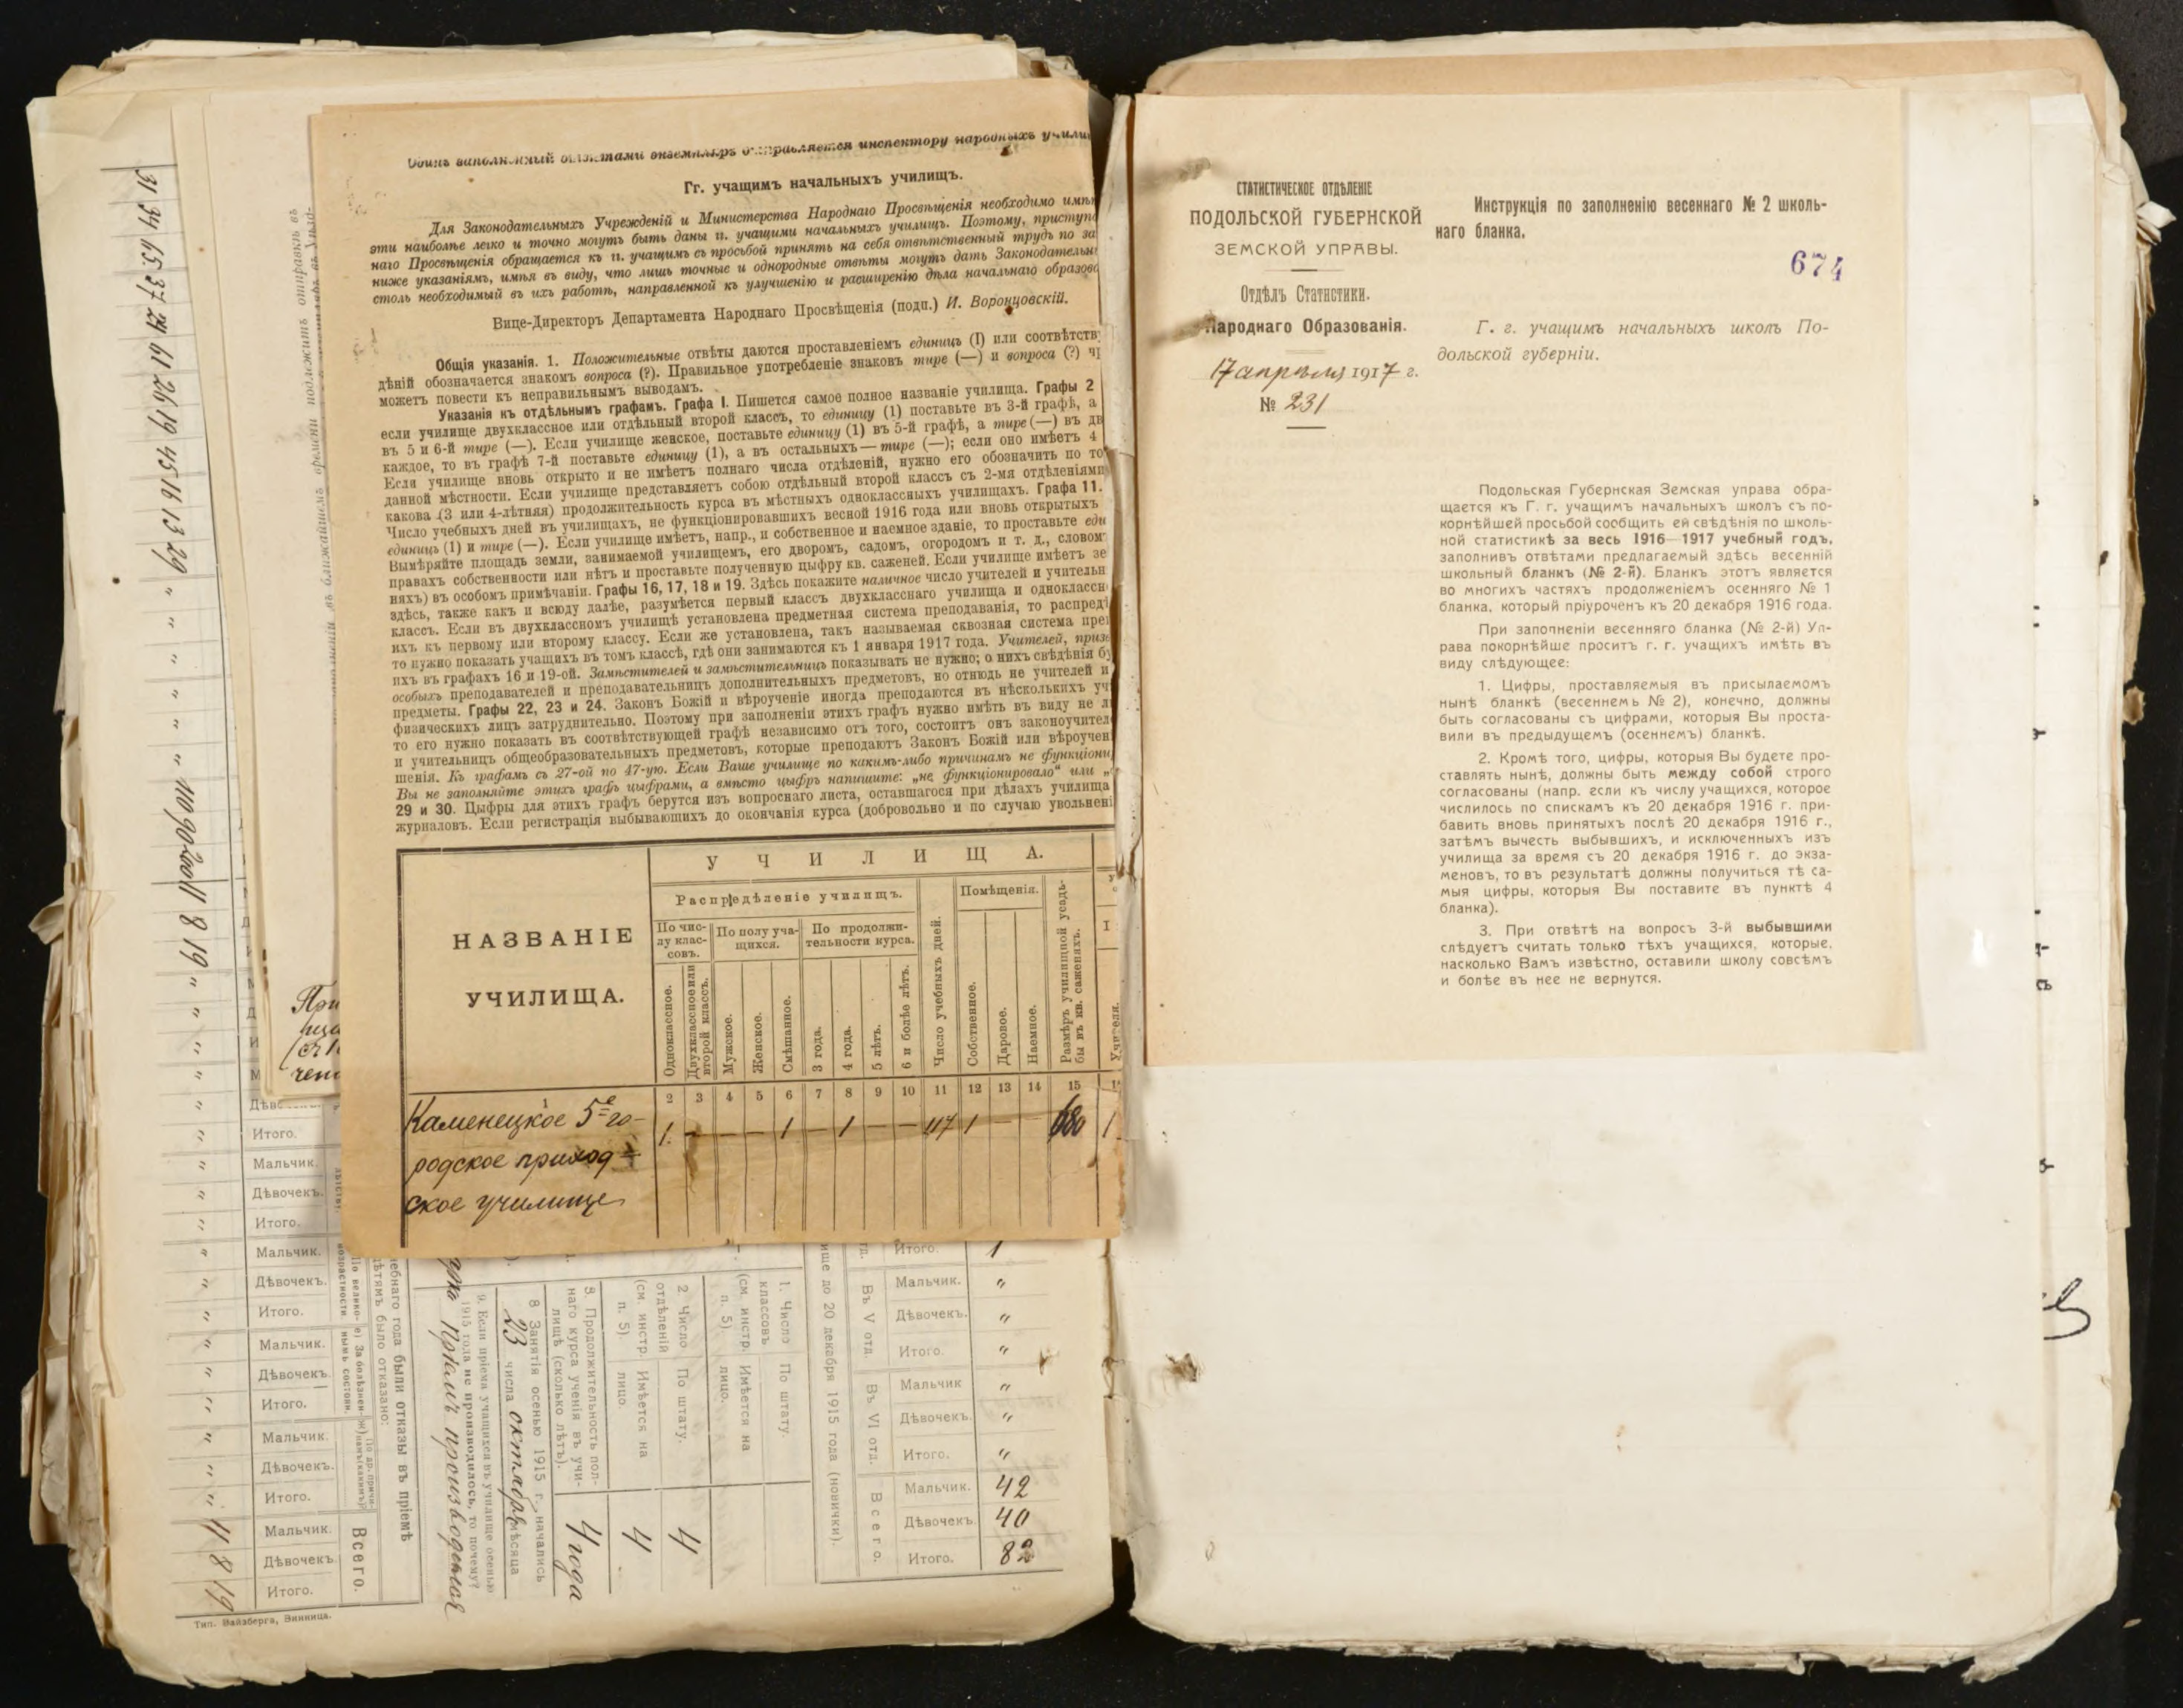 инспектору народныхъ
Гг. учащимъ начальныхъ училищъ.
Для Законодательныхъ Учрежденій и Министерства Народнаго Просвѣщенія необходимо
эти наиболѣе легко и точно могутъ быть даны гг. учащими начальныхъ училищъ. Поэтому,
наго Просвѣщенія обращается къ гг. учащимъ съ просьбой принять на себя отвѣтственный трудъ по
ниже указаніямъ, имѣя въ виду, что лишь точные и однородные отвѣты могутъ дать
столь необходимый въ ихъ работѣ, направленной къ улучшенію и расширенію дѣла начальнаго
Вице-Директоръ Департамента Народнаго Просвѣщенія (подп.) И. Воронцовскій.
Общія указанія. 1. Положительные отвѣты даются проставленіемъ единицъ (I) или
дѣній обозначается знакомъ вопроса (?). Правильное употребленіе знаковъ тире (—) и вопроса (?)
можетъ повести къ неправильнымъ выводамъ.
Указанія къ отдѣльнымъ графамъ. Графа I. Пишется самое полное названіе училища. Графы 2
если училище двухклассное или отдѣльный второй классъ, то единицу (1) поставьте въ 3-й графѣ, а
въ 5 и 6-й тире (—). Если училище женское, поставьте единицу (1) въ 5-й графѣ, а тире (—) въ
каждое, то въ графѣ 7-й поставьте единицу (1), а въ остальныхъ — тире (—); если оно имѣетъ 4
Если училище вновь открыто и не имѣетъ полнаго числа отдѣленій, нужно его обозначить по
данной мѣстности. Если училище представляетъ собою отдѣльный второй классъ съ 2-мя отдѣленіями
какова (3 или 4-лѣтняя) продолжительность курса въ мѣстныхъ одноклассныхъ училищахъ. Графа 11.
Число учебныхъ дней въ училищахъ, не функціонировавшихъ весной 1916 года или вновь открытыхъ
единицъ (1) и тире (—). Если училище имѣетъ, напр., и собственное и наемное зданіе, то проставьте
Вымѣряйте площадь земли, занимаемой училищемъ, его дворомъ, садомъ, огородомъ и т. д., словомъ
правахъ собственности или нѣтъ и проставьте полученную цыфру кв. саженей. Если училище имѣетъ
няхъ) въ особомъ примѣчаніи. Графы 16, 17, 18 и 19. Здѣсь покажите наличное число учителей и
здѣсь, также какъ и всюду далѣе, разумѣется первый классъ двухкласснаго училища и
классъ. Если въ двухклассномъ училищѣ установлена предметная система преподаванія, то
ихъ къ первому или второму классу. Если же установлена, такъ называемая сквозная система
то нужно показать учащихъ въ томъ классѣ, гдѣ они занимаются къ 1 января 1917 года. Учителей,
ихъ въ графахъ 16 и 19-ой. Замѣстителей и замѣстительницъ показывать не нужно; о нихъ свѣдѣнія
особыхъ преподавателей и преподавательницъ дополнительныхъ предметовъ, но отнюдь не учителей и
предметы. Графы 22, 23 и 24. Законъ Божій и вѣроученіе иногда преподаются въ нѣсколькихъ
физическихъ лицъ затруднительно. Поэтому при заполненіи этихъ графъ нужно имѣть въ виду не
то его нужно показать въ соотвѣтствующей графѣ независимо отъ того, состоитъ онъ
и учительницъ общеобразовательныхъ предметовъ, которые преподаютъ Законъ Божій или
шенія. Къ графамъ съ 27-ой по 47-ую. Если Ваше училище по какимъ-либо причинамъ не
Вы не заполняйте этихъ графъ цыфрами, а вмѣсто цыфръ напишите: „не функціонировало“ или
29 и 30. Цыфры для этихъ графъ берутся изъ вопроснаго листа, оставшагося при дѣлахъ училища
журналовъ. Если регистрація выбывающихъ до окончанія курса (добровольно и по случаю
НАЗВАНІЕ
УЧИЛИЩА.
УЧИЛИЩА.
Распредѣленіе училищъ.
По чис-
лу клас-
совъ.
По полу уча-
щихся.
По продолжи-
тельности курса.
Число учебныхъ дней.
Помѣщенія.
Размѣръ училищной усадь-
бы въ кв. саженяхъ.
Одноклассное.
Двухклассное или
второй классъ.
Мужское.
Женское.
Смѣшанное.
3 года.
4 года.
5 лѣтъ.
6 и болѣе лѣтъ.
Собственное.
Даровое.
Наемное.
Учителя.
1 2 3 4 5 6 7 8 9 10 11 12 13 14 15
Каменецкое 5-е го-
родское приход-
ское училище
1 — — — 1 — 1 — — 117 1 — — 680 1
Итого.
Мальчик.
Дѣвочекъ.
Итого.
Мальчик.
Дѣвочекъ.
Итого.
Мальчик.
Дѣвочекъ.
Итого.
Мальчик.
Дѣвочекъ.
Итого.
Мальчик.
Дѣвочекъ.
Итого.
Всего.
11 8 19
Тип. Вайзберга, Винница.
ебнаго года были отказы въ пріемѣ
ѣтямъ было отказано:
9. Если пріема учащихся въ училище осенью
1915 года не производилось, то почему?
пріемъ производился
8 Занятія осенью 1915 г. начались
23 числа октября мѣсяца
3. Продолжительность пол-
наго курса ученія въ учи-
лищѣ (сколько лѣтъ).
4 года
2. Число
отдѣленій
(см. инстр.
п. 5).
По штату.
Имѣется на
лицо.
4
4
1. Число
классовъ
(см. инстр.
п. 5)
По штату.
Имѣется на
лицо.
ище до 20 декабря 1915 года (новички).
Итого. 1
Въ V отд.
Мальчик. "
Дѣвочекъ. "
Итого. "
Въ VI отд.
Мальчик "
Дѣвочекъ. "
Итого. "
Всего.
Мальчик. 42
Дѣвочекъ. 40
Итого. 82
СТАТИСТИЧЕСКОЕ ОТДѢЛЕНІЕ
ПОДОЛЬСКОЙ ГУБЕРНСКОЙ
ЗЕМСКОЙ УПРАВЫ.
Отдѣлъ Статистики.
Народнаго Образованія.
17 апрѣля 1917 г.
№ 231
Инструкція по заполненію весенняго № 2 школь-
наго бланка.
674
Г. г. учащимъ начальныхъ школъ По-
дольской губерніи.
Подольская Губернская Земская управа обра-
щается къ Г. г. учащимъ начальныхъ школъ съ по-
корнѣйшей просьбой сообщить ей свѣдѣнія по школь-
ной статистикѣ за весь 1916—1917 учебный годъ,
заполнивъ отвѣтами предлагаемый здѣсь весенній
школьный бланкъ (№ 2-й). Бланкъ этотъ является
во многихъ частяхъ продолженіемъ осенняго № 1
бланка, который пріуроченъ къ 20 декабря 1916 года.
При заполненіи весенняго бланка (№ 2-й) Уп-
рава покорнѣйше проситъ г. г. учащихъ имѣть въ
виду слѣдующее:
1. Цифры, проставляемыя въ присылаемомъ
нынѣ бланкѣ (весеннемъ № 2), конечно, должны
быть согласованы съ цифрами, которыя Вы проста-
вили въ предыдущемъ (осеннемъ) бланкѣ.
2. Кромѣ того, цифры, которыя Вы будете про-
ставлять нынѣ, должны быть между собой строго
согласованы (напр. если къ числу учащихся, которое
числилось по спискамъ къ 20 декабря 1916 г. при-
бавить вновь принятыхъ послѣ 20 декабря 1916 г.,
затѣмъ вычесть выбывшихъ, и исключенныхъ изъ
училища за время съ 20 декабря 1916 г. до экза-
меновъ, то въ результатѣ должны получиться тѣ са-
мыя цифры, которыя Вы поставите въ пунктѣ 4
бланка).
3. При отвѣтѣ на вопросъ 3-й выбывшими
слѣдуетъ считать только тѣхъ учащихся, которые,
насколько Вамъ извѣстно, оставили школу совсѣмъ
и болѣе въ нее не вернутся.